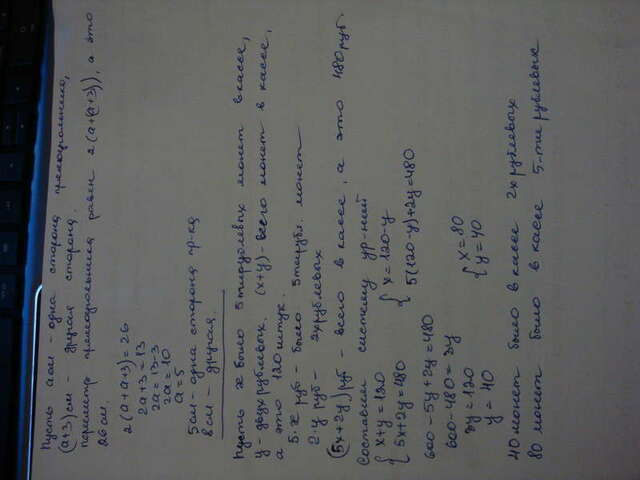 Пусть a см - одна сторона прямоугольника,
(a+3) см - другая сторона.
периметр прямоугольника равен 2(a+(a+3)), а это
26 см.
2(a+a+3)=26
2a+3=13
2a=13-3
2a=10
a=5
5 см - одна сторона пр-ка
8 см - другая.
Пусть x было 5тирублевых монет в кассе,
y - двухрублевых. (x+y) - всего монет в кассе,
а это 120 штук.
5·x руб - было 5тирубл. монет
2·y руб - 2хрублевых
(5x+2y) руб - всего в кассе, а это 480 руб.
Составим систему ур-ний
{ x+y=120 { x=120-y
5x+2y=480 5(120-y)+2y=480
600-5y+2y=480
600-480=3y
3y=120 { x=80
y=40 y=40
40 монет было в кассе 2хрублевых
80 монет было в кассе 5-ти рублевых